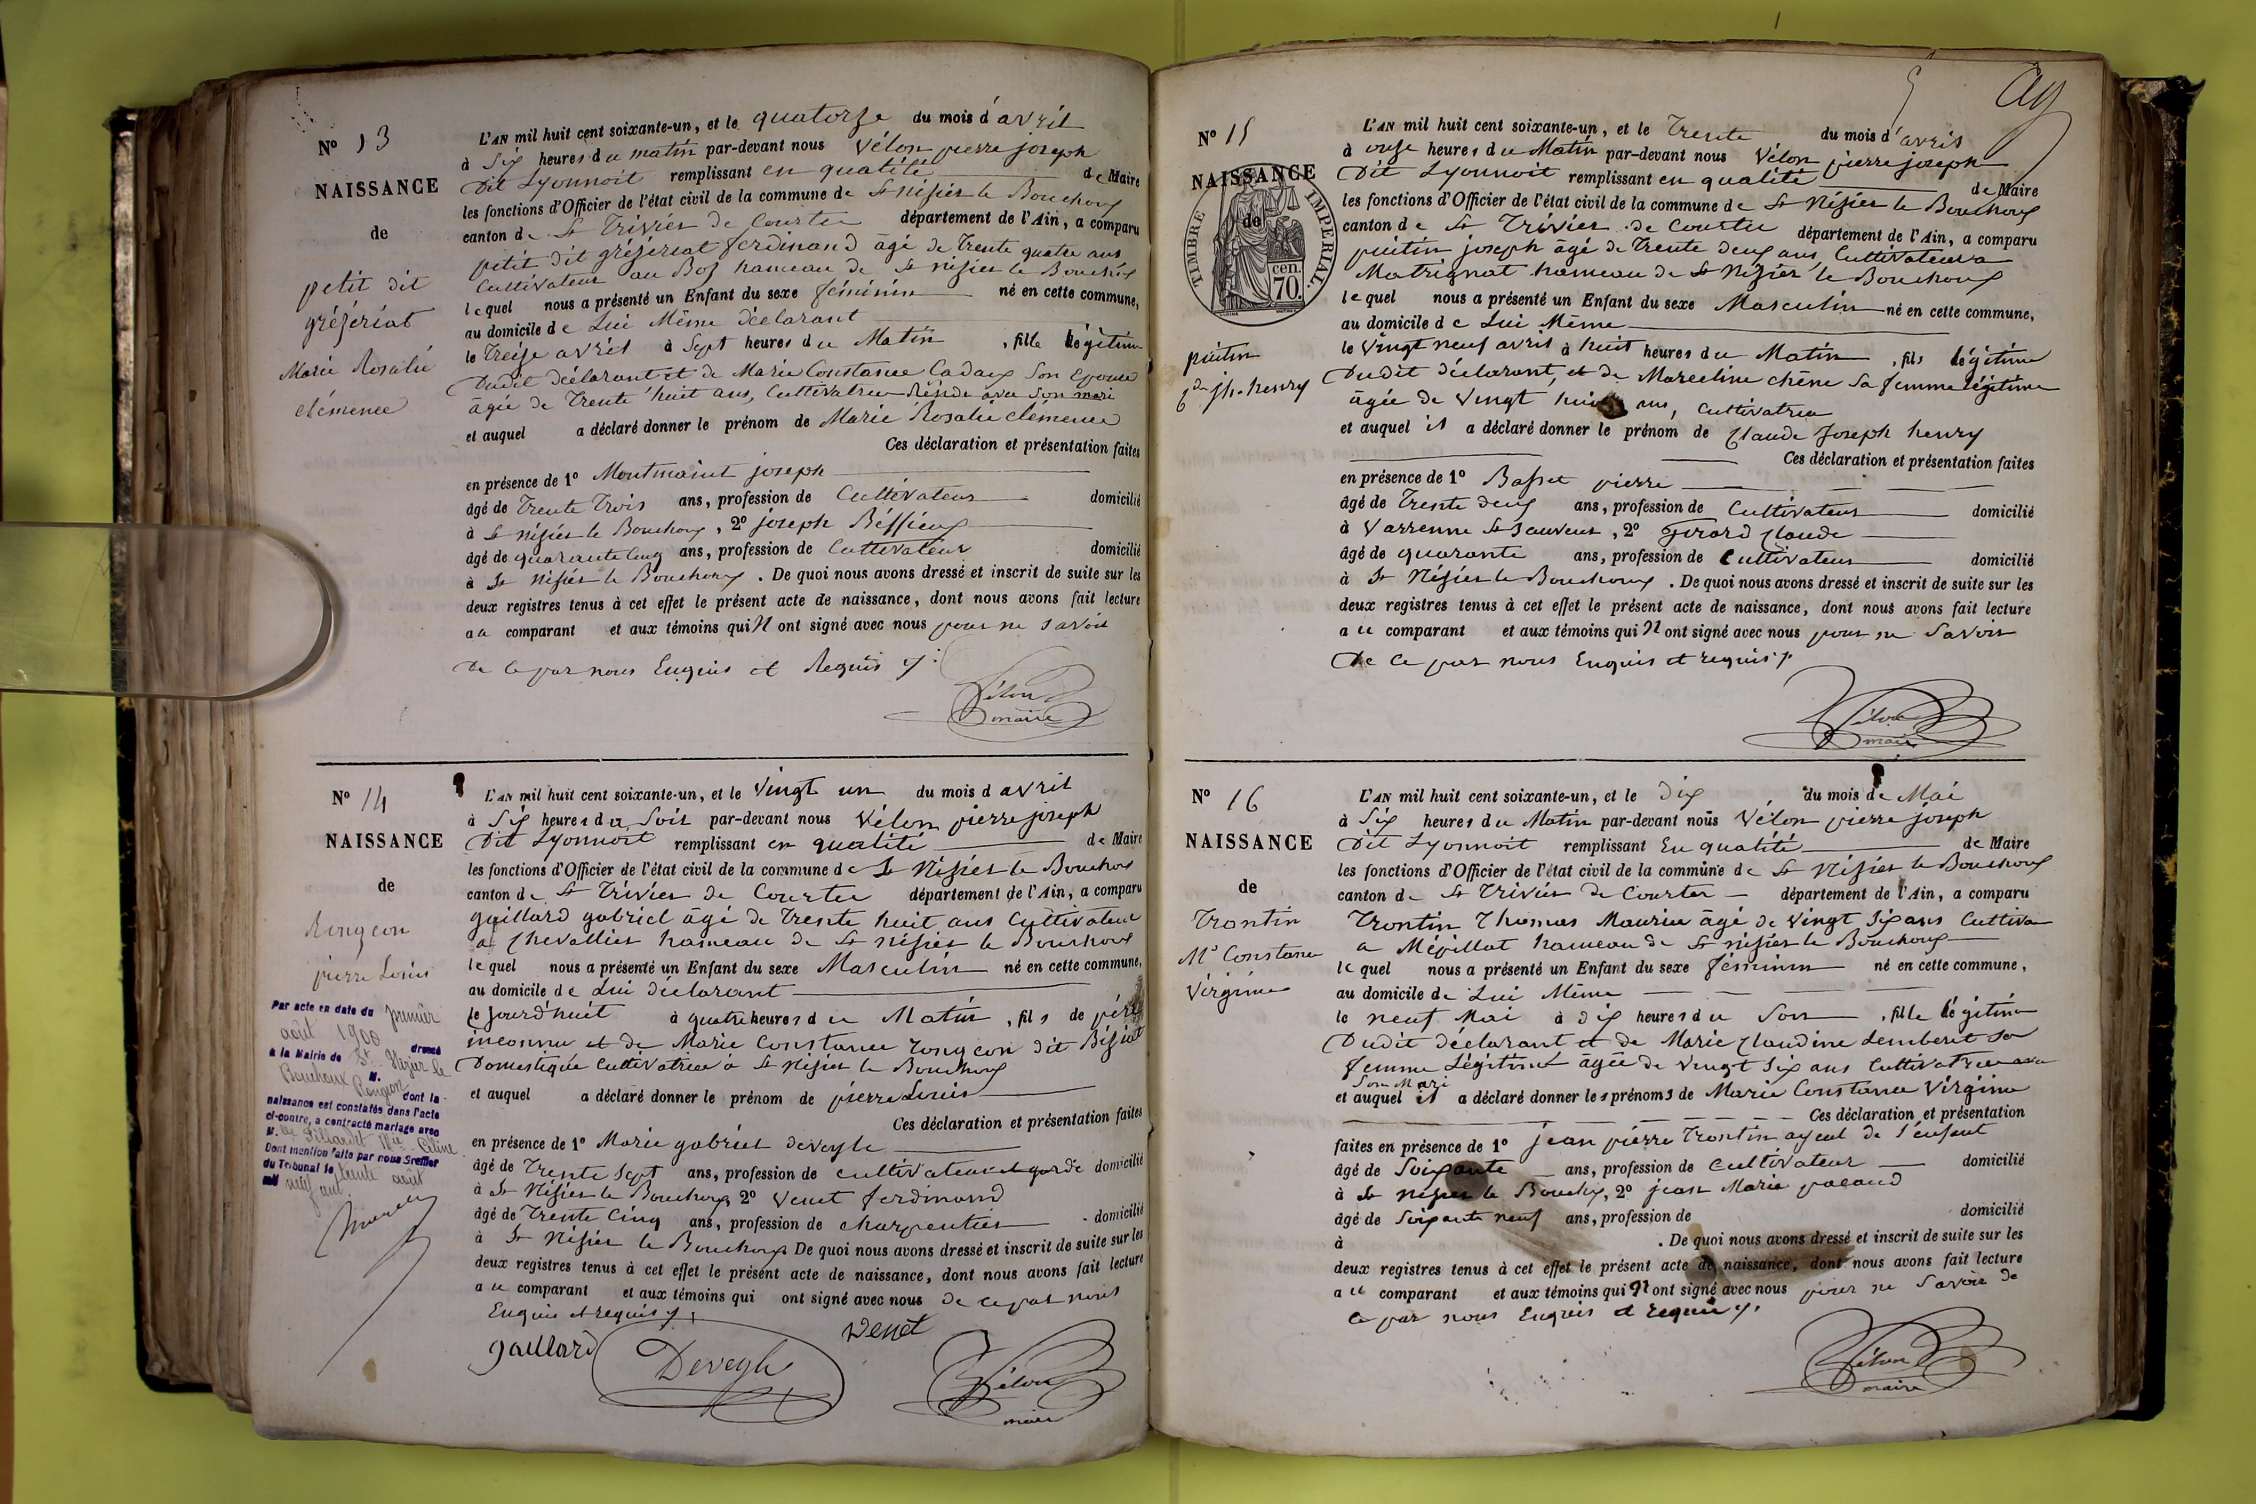 N° 13
NAISSANCE
de
petit dit
grézériat
Marie Rosalie
clémence
L'AN mil huit cent soixante-un, et le quatorze du mois d'avril
à Six heures du matin par-devant nous Vélon pierre joseph
Dit Lyonnoit remplissant en qualité de Maire
les fonctions d'Officier de l'état civil de la commune de St Nizier le Bouchoux
canton de St Trivier de Courtes département de l'Ain, a comparu
petit dit grézériat ferdinand âgé de Trente quatre ans
Cultivateur au Boz hameau de St nizier le Bouchoux
lequel nous a présenté un Enfant du sexe féminin né en cette commune,
au domicile de Lui Même déclarant
le Treize avril à Sept heures du Matin, fille légitime
Dudit déclarant et de Marie Constance Cadaux Son Epouse
âgée de Trente huit ans, Cultivatrice Réside avec Son mari
et auquel a déclaré donner le prénom de Marie Rosalie clemence
Ces déclaration et présentation faites
en présence de 1° Montmaint joseph
âgé de Trente Trois ans, profession de Cultivateur domicilié
à St nizier le Bouchoux, 2° joseph Béffieux
âgé de quarante Cinq ans, profession de Cultivateur domicilié
à St Nizier le Bouchoux. De quoi nous avons dressé et inscrit de suite sur les
deux registres tenus à cet effet le présent acte de naissance, dont nous avons fait lecture
au comparant et aux témoins qui N ont signé avec nous pour ne savoir
de ce par nous Enquis et Requis
Vélon
maire
N° 14
NAISSANCE
de
Rongeon
pierre Louis
Par acte en date du premier
août 1900 dressé
à la Mairie de St Nizier le
Bouchoux M.
Rongeon dont la
naissance est constatée dans l'acte
ci-contre, a contracté mariage avec
M. Mie Céline
Dont mention faite par nous Greffier
du Tribunal le trente août
mil neuf cent
L'AN mil huit cent soixante-un, et le Vingt un du mois d avril
à Six heures du Soir par-devant nous Vélon pierre joseph
Dit Lyonnoit remplissant en qualité de Maire
les fonctions d'Officier de l'état civil de la commune de St Nizier le Bouchoux
canton de St Trivier de Courtes département de l'Ain, a comparu
gaillard gabriel âgé de Trente huit ans Cultivateur
a Chevallier hameau de St nizier le Bouchoux
lequel nous a présenté un Enfant du sexe Masculin né en cette commune,
au domicile de Lui déclarant
le jourd'huit à quatre heures du Matin, fils de père
inconnu et de Marie Constance rongeon dit Biziat
Domestique Cultivatrice à St Nizier le Bouchoux
et auquel a déclaré donner le prénom de pierre Louis
Ces déclaration et présentation faites
en présence de 1° Marie gabriel deveyle
âgé de Trente Sept ans, profession de cultivateur et garde domicilié
à St Nizier le Bouchoux, 2° Venet ferdinand
âgé de Trente Cinq ans, profession de charpentier domicilié
à St Nizier le Bouchoux De quoi nous avons dressé et inscrit de suite sur les
deux registres tenus à cet effet le présent acte de naissance, dont nous avons fait lecture
au comparant et aux témoins qui ont signé avec nous de ce par nous
Enquis et requis
gaillard Deveyle Venet
Vélon
maire
N° 15
NAISSANCE
de
TIMBRE IMPERIAL
70 cen.
putin
Cde jh. henry
L'AN mil huit cent soixante-un, et le Trente du mois d'avril
à onze heures du Matin par-devant nous Vélon pierre joseph
Dit Lyonnoit remplissant en qualité de Maire
les fonctions d'Officier de l'état civil de la commune de St Nizier le Bouchoux
canton de St Trivier de Courtes département de l'Ain, a comparu
putin joseph âgé de Trente deux ans Cultivateur a
Matrignat hameau de St Nizier le Bouchoux
lequel nous a présenté un Enfant du sexe Masculin né en cette commune,
au domicile de Lui Même
le Vingt neuf avril à huit heures du Matin, fils légitime
Dudit déclarant, et de Marceline chêne Sa femme légitime
âgée de Vingt huit ans, cultivatrice
et auquel il a déclaré donner le prénom de Claude Joseph henry
Ces déclaration et présentation faites
en présence de 1° Basset pierre
âgé de Trente deux ans, profession de Cultivateur domicilié
à Varenne St Sauveur, 2° Girard Claude
âgé de quarante ans, profession de Cultivateur domicilié
à St Nizier le Bouchoux. De quoi nous avons dressé et inscrit de suite sur les
deux registres tenus à cet effet le présent acte de naissance, dont nous avons fait lecture
au comparant et aux témoins qui N ont signé avec nous pour ne Savoir
De Ce par nous Enquis et requis
Vélon
maire
N° 16
NAISSANCE
de
Trontin
Me Constance
Virginie
L'AN mil huit cent soixante-un, et le Dix du mois de Mai
à Six heures du Matin par-devant nous Vélon pierre joseph
Dit Lyonnoit remplissant En qualité de Maire
les fonctions d'Officier de l'état civil de la commune de St Nizier le Bouchoux
canton de St Trivier de Courtes département de l'Ain, a comparu
Trontin Thomas Maurice âgé de Vingt Six ans Cultiva
a Mépillat hameau de St nizier le Bouchoux
lequel nous a présenté un Enfant du sexe féminin né en cette commune,
au domicile de Lui Même
le neuf Mai à dix heures du Soir, fille légitime
Dudit déclarant et de Marie Claudine Lemberet Sa
femme Légitime âgée de Vingt Six ans Cultivatrice avec
Son Mari
et auquel il a déclaré donner les prénoms de Marie Constance Virginie
Ces déclaration et présentation
faites en présence de 1° jean pierre Trontin ayeul de l'enfant
âgé de Soixante ans, profession de cultivateur domicilié
à St Nizier le Bouchx, 2° jean Marie pacaud
âgé de Soixante neuf ans, profession de domicilié
à . De quoi nous avons dressé et inscrit de suite sur les
deux registres tenus à cet effet le présent acte de naissance, dont nous avons fait lecture
au comparant et aux témoins qui N ont signé avec nous pour ne Savoir de
Ce par nous Enquis et requis
Vélon
maire